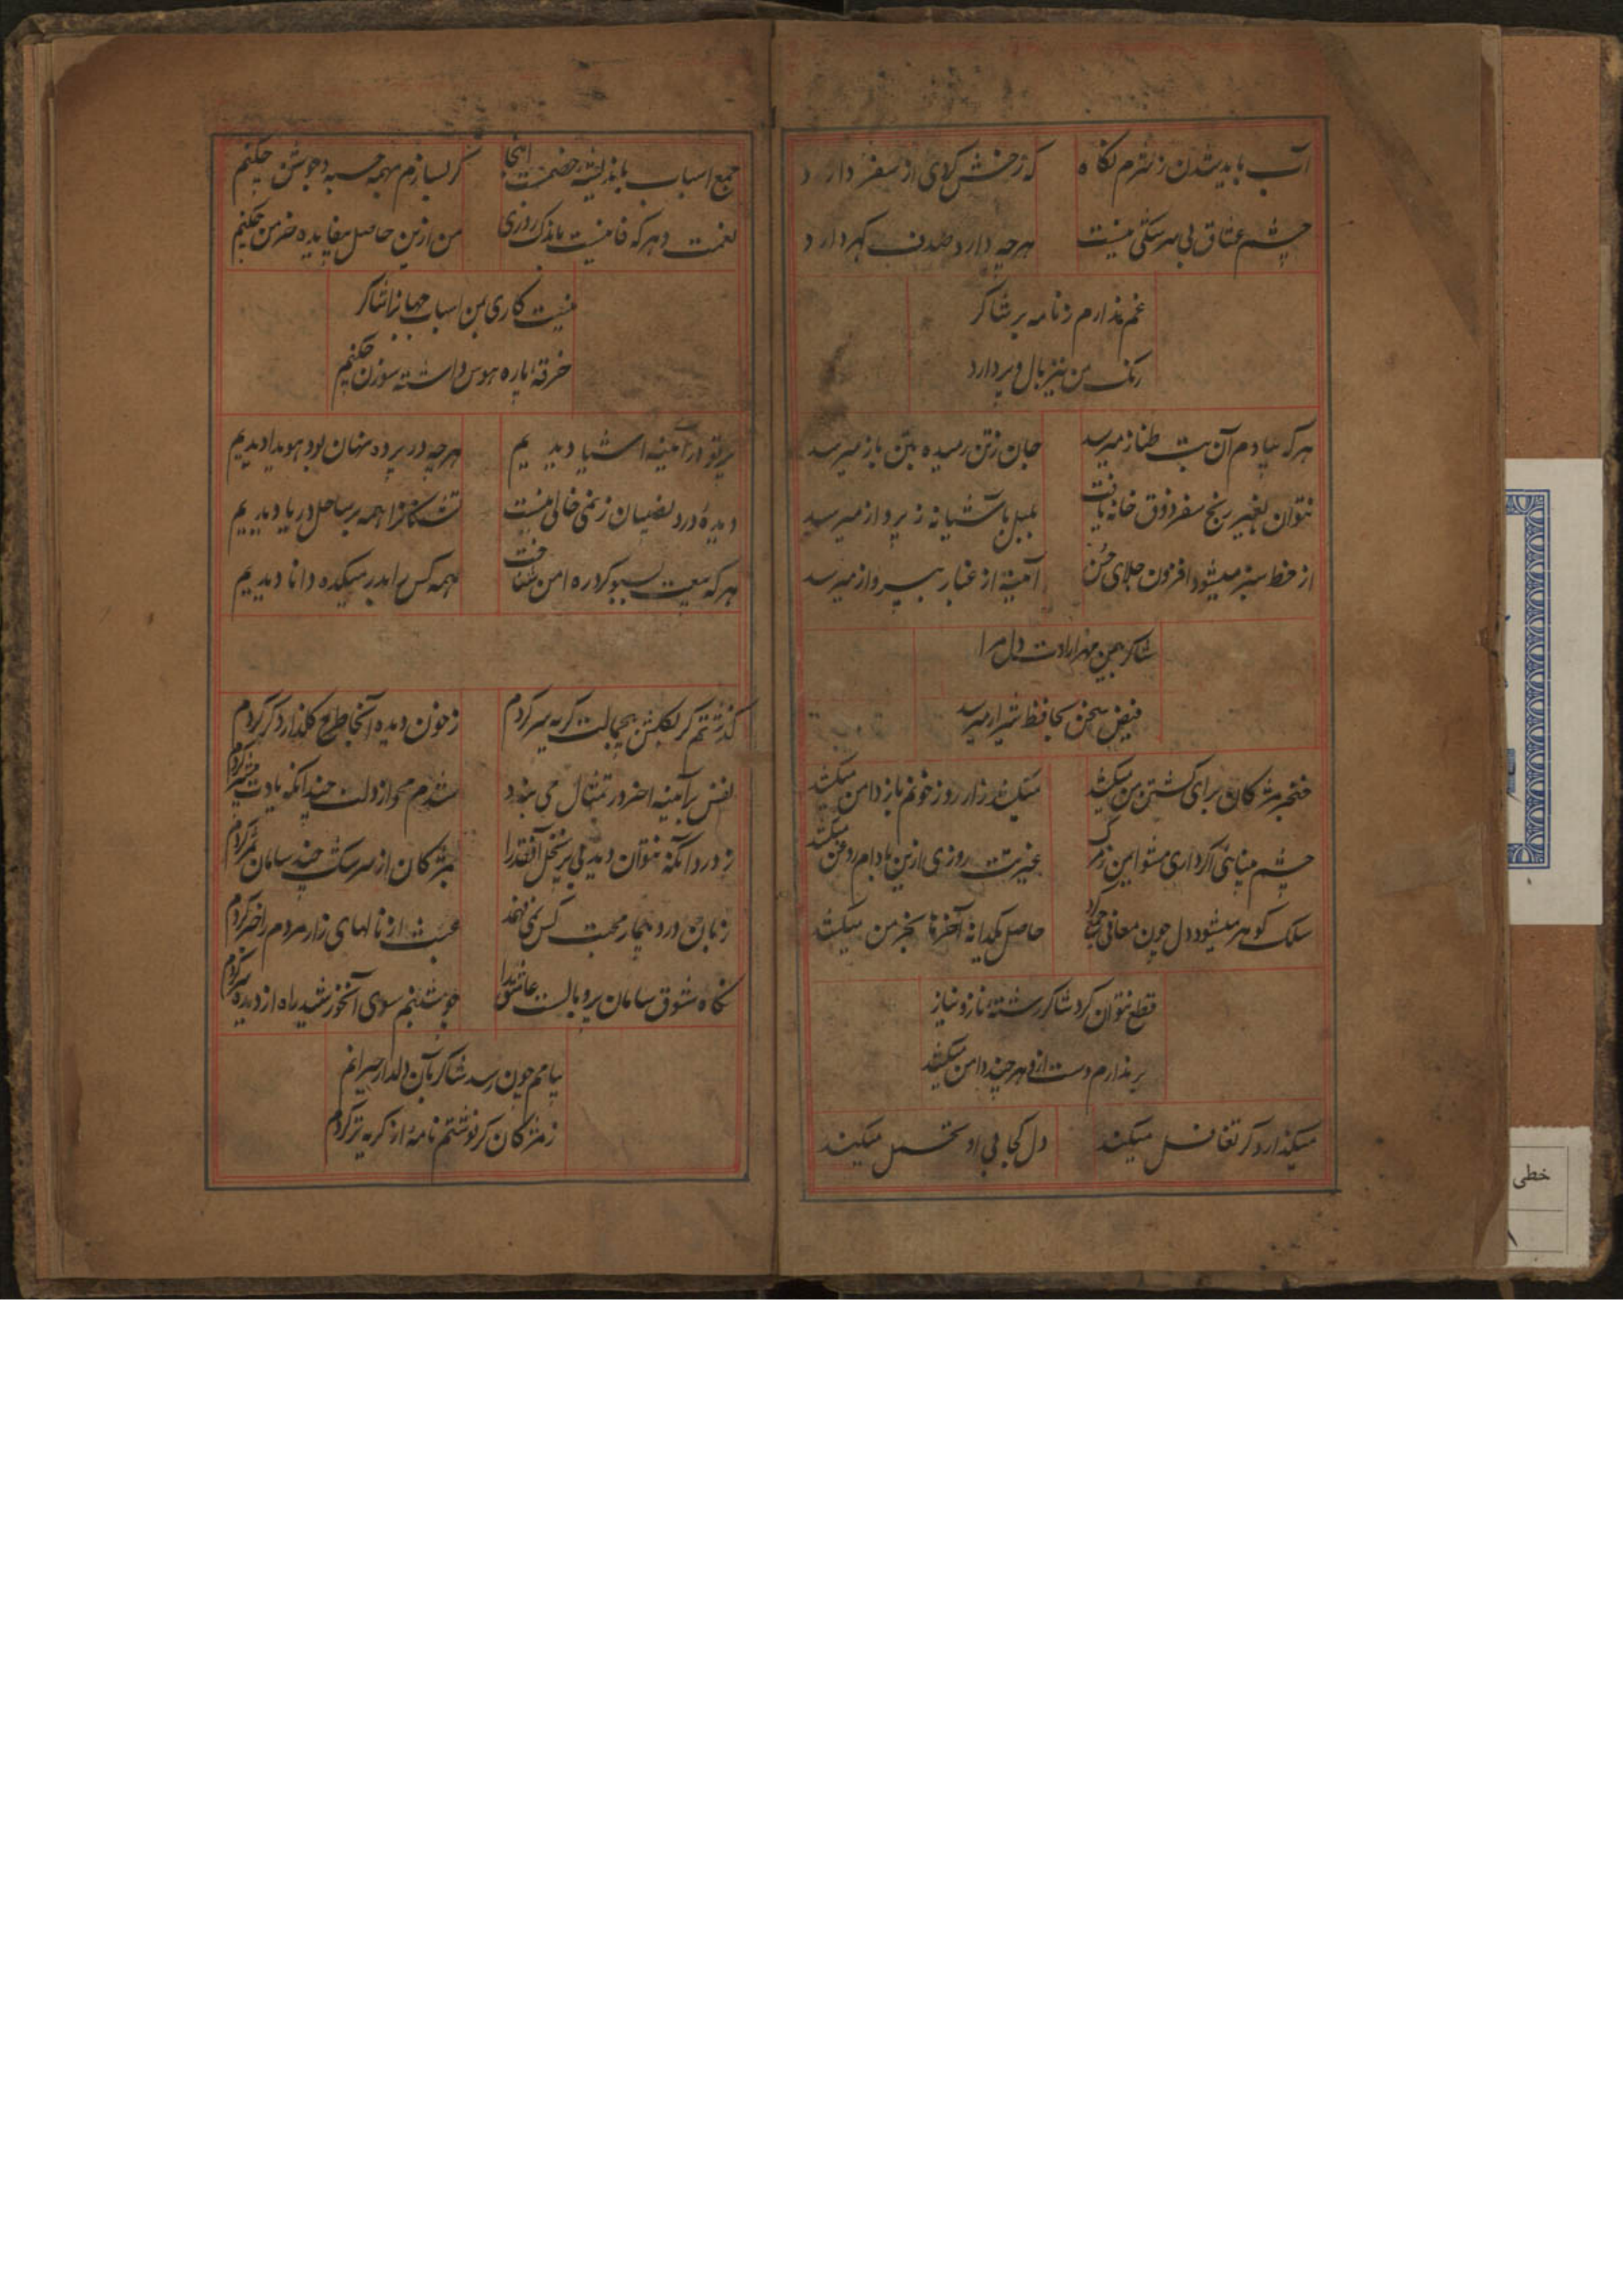 آب باید شدن ز شرم نگاه
که زخش کلای از سفر دارد
چشم عشاق بی سرشکی نیست
هرچه دارد صدف گهر دارد
غم ندارم ز نامه بر شاکر
رنگ من نیز بال و پر دارد
هرکه بیادم آن بت طناز میرسد
جان ز تن رمیده بتن باز میرسد
نتوان بغیر رنج سفر ذوق خانه یافت
بلبل بآشیانه ز پرواز میرسد
از خط سبز میشود افزون جلای حسن
آئینه از غبار بپرواز میرسد
شاکر بمین مهر ارادت دل مرا
فیض سخن بحافظ شیراز میرسد
خنجر مژگان برای کشتن من میکشد
میکشد زار روز خونم باز دامن میکشد
چشم بینائی اگر داری مشو ایمن ز مرگ
عبرت روزی ازین بادام روغن میکشد
سلک گوهر میشود دل چون معانی جمع کرد
حاصل یکدانه آخرها بخرمن میکشد
قطع نتوان کرد شاکر رشته ناز و نیاز
بر ندارم دست ازو هرچند دامن میکشد
میگذارد گر تغافل میکند
دل کجا بی او تحمل میکند
جمع اسباب باندیشه خصمست اینجا
گر بسازم مهمه حسبه و جوشن چکنم
نعمت دهر که فانیست باندک روزی
من ازین حاصل بیفایده خرمن چکنم
نیست کاری بمن اسباب جهانرا شاکر
خرقه پاره هوس داشته سوزن چکنم
پرتو در آئینه اشیا دیدیم
هرچه در پرده نهان بود هویدا دیدیم
دیده درد نصیبان ز نمی خالی نیست
تشنگانرا همه بر ساحل دریا دیدیم
هرکه بیعت بسبو کرد ره امن شناخت
همه کس را بدر میکده دانا دیدیم
گذشتم گر بگلشن بیجمالت گریه سر کردم
ز خون دیده آنجا طرح گلزار دگر کردم
نفس بر آئینه احضر در تمثال می بندد
شدم محو از دلت چندانکه یادت بیشتر کردم
ز درد آنکه نتوان دید بی بر نخل آنقد را
بمژگان از سرشک چند سامان ثمر کردم
زبان درد بیمار محبت کس نمی فهمد
عبث از نالهای زار مردم را خبر کردم
نگاه شوق سامان پر و بالست عاشق را
چو شبنم سوی آنخورشید راه از دیده سر کردم
پیامم چون رسد شاکر بآن دلدار حیرانم
ز مژگان گر نوشتم نامه از گریه تر کردم
خطی